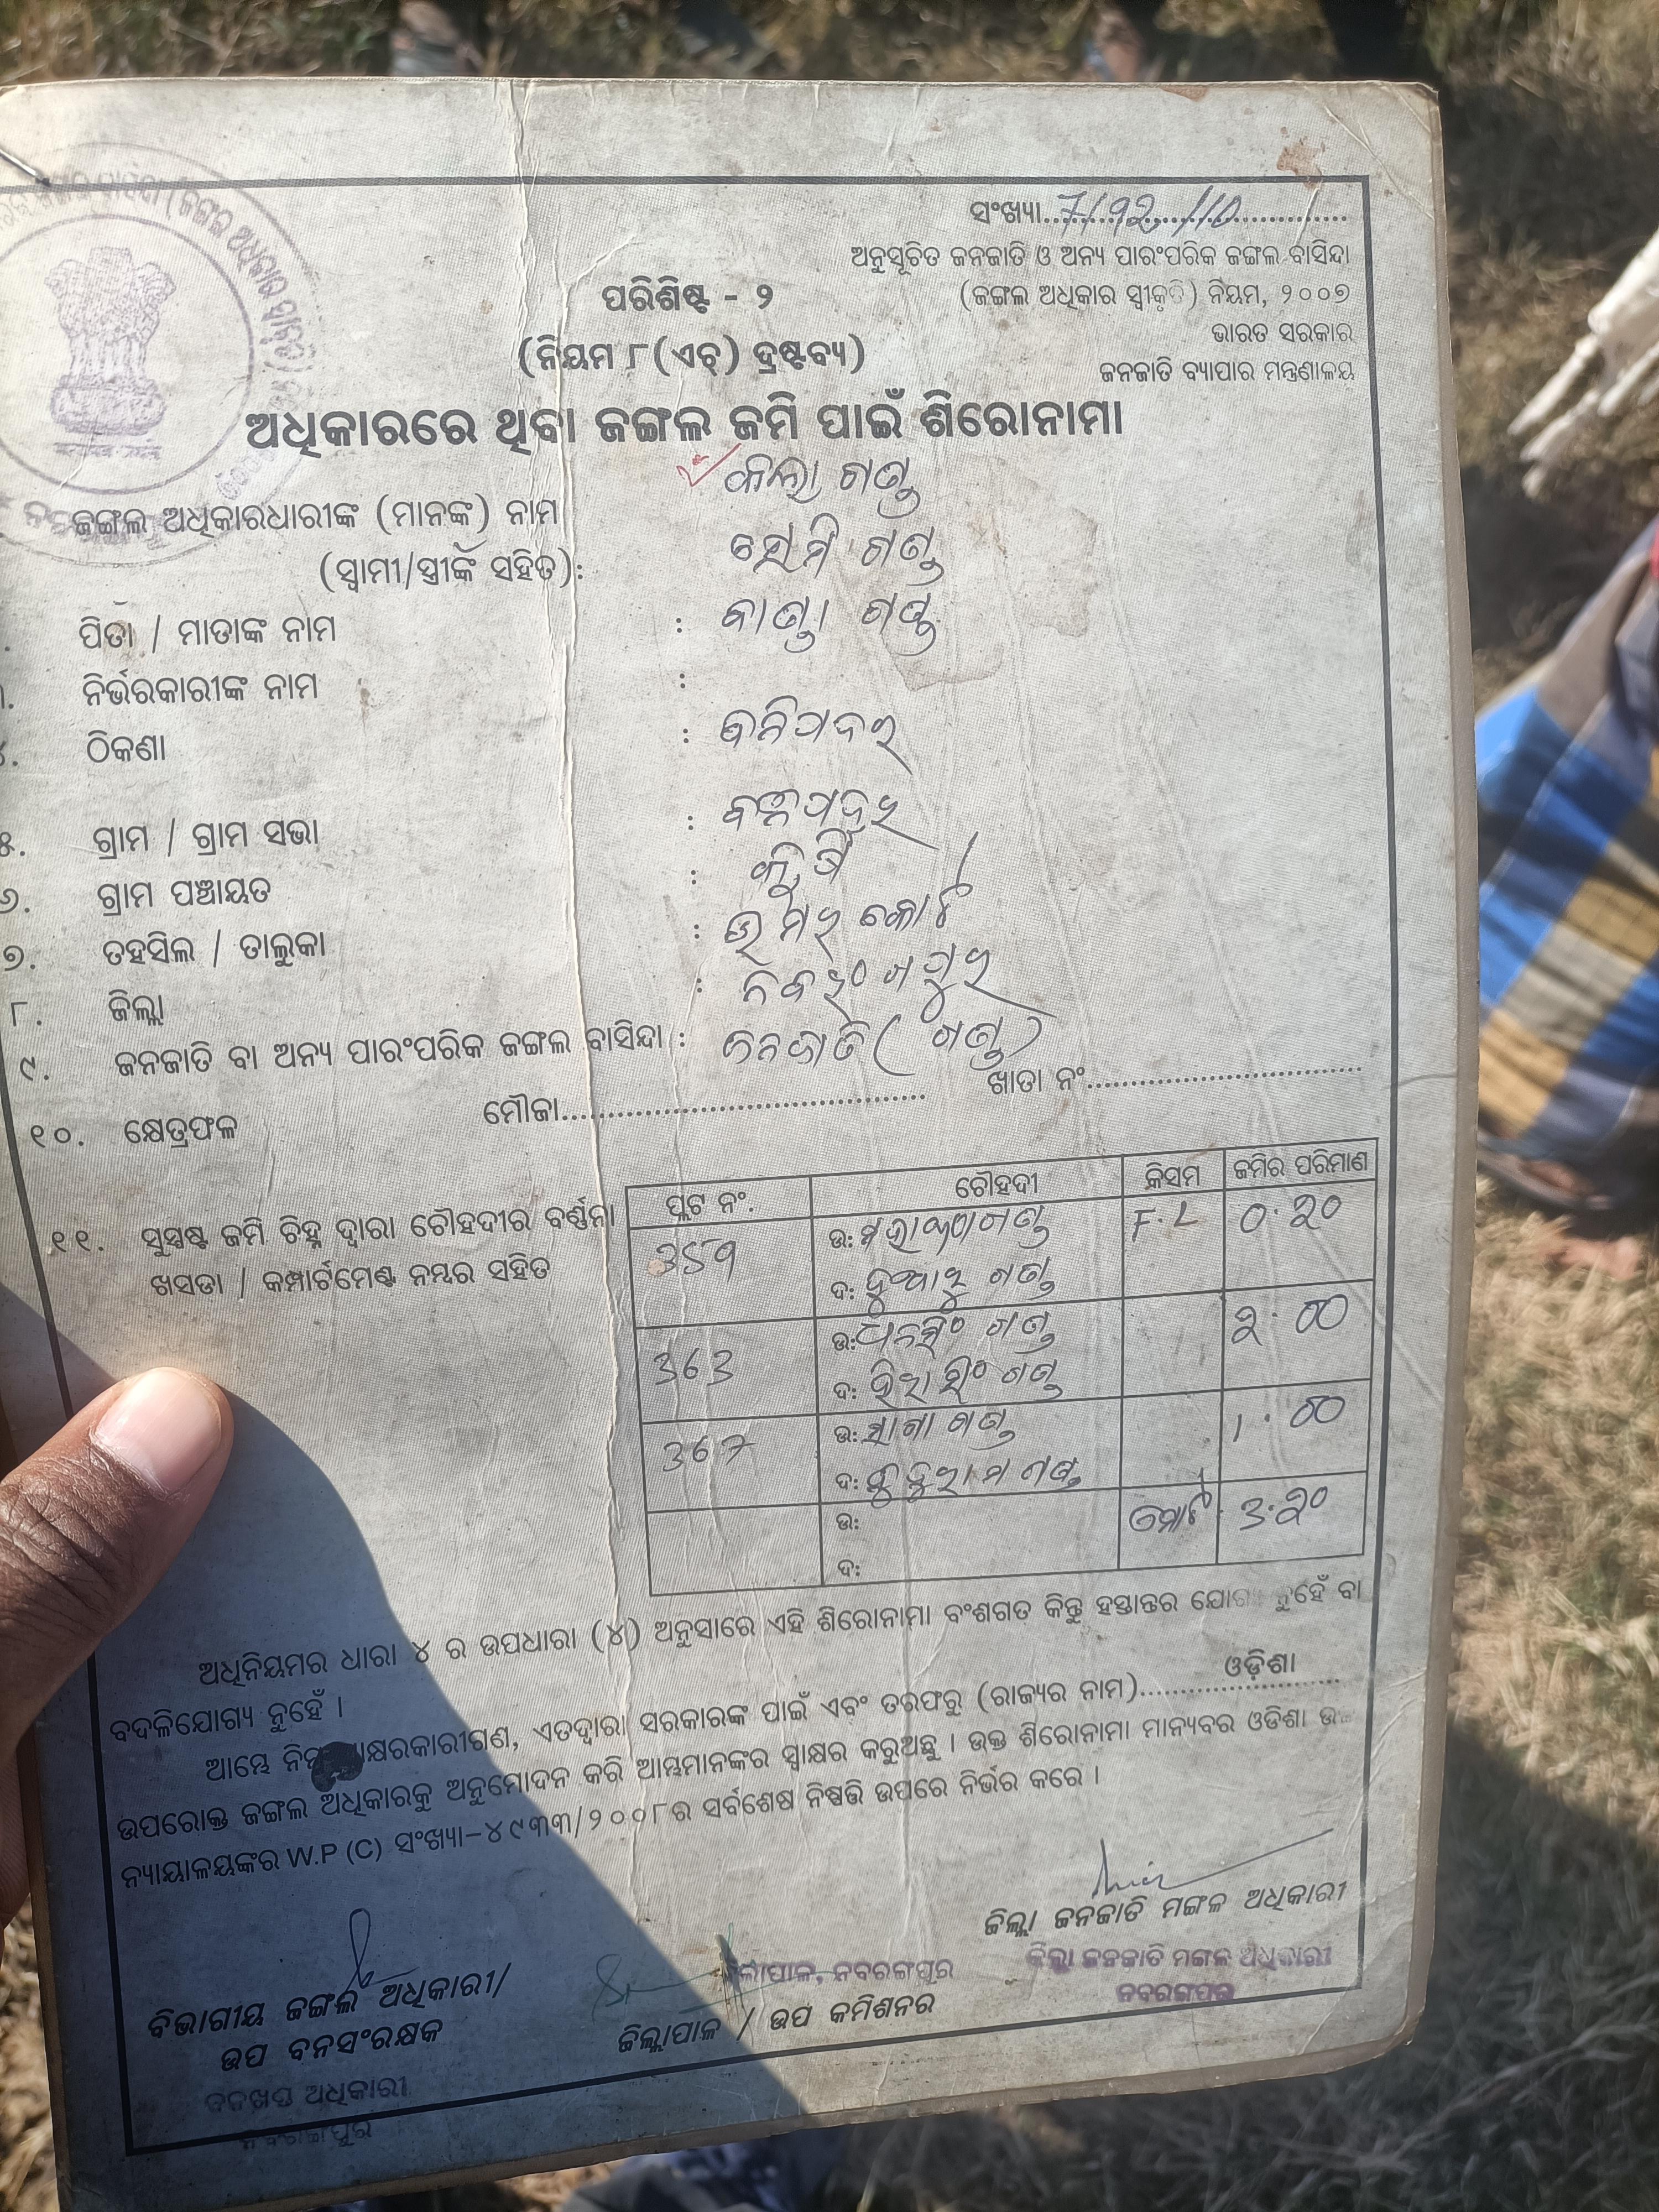 ସଂଖ୍ୟା...7/92/10...
ଅନୁସୂଚିତ ଜନଜାତି ଓ ଅନ୍ୟ ପାରଂପରିକ ଜଙ୍ଗଲ ବାସିନ୍ଦା
(ଜଙ୍ଗଲ ଅଧିକାର ସ୍ୱୀକୃତି) ନିୟମ, ୨୦୦୭
ଭାରତ ସରକାର
ଜନଜାତି ବ୍ୟାପାର ମନ୍ତ୍ରଣାଳୟ
ପରିଶିଷ୍ଟ - ୨
(ନିୟମ ୮(ଏଚ୍) ଦ୍ରଷ୍ଟବ୍ୟ)
ଅଧିକାରରେ ଥିବା ଜଙ୍ଗଲ ଜମି ପାଇଁ ଶିରୋନାମା
ଜଙ୍ଗଲ ଅଧିକାରଧାରୀଙ୍କ (ମାନଙ୍କ) ନାମ ଗଣ୍ଡ
(ସ୍ୱାମୀ/ସ୍ତ୍ରୀଙ୍କ ସହିତ): ଗଣ୍ଡ
ପିତା / ମାତାଙ୍କ ନାମ : ଗଣ୍ଡ
ନିର୍ଭରକାରୀଙ୍କ ନାମ :
ଠିକଣା :
୫. ଗ୍ରାମ / ଗ୍ରାମ ସଭା :
୬. ଗ୍ରାମ ପଞ୍ଚାୟତ :
୭. ତହସିଲ / ତାଲୁକା : ଉମରକୋଟ
୮. ଜିଲ୍ଲା : ନବରଂଗପୁର
୯. ଜନଜାତି ବା ଅନ୍ୟ ପାରଂପରିକ ଜଙ୍ଗଲ ବାସିନ୍ଦା : ଜନଜାତି (ଗଣ୍ଡ)
୧୦. କ୍ଷେତ୍ରଫଳ ମୌଜା........ ଖାତା ନଂ........
୧୧. ସୁସ୍ପଷ୍ଟ ଜମି ଚିହ୍ନ ଦ୍ୱାରା ଚୌହଦୀର ବର୍ଣ୍ଣନା
ଖସଡା / କମ୍ପାର୍ଟମେଣ୍ଟ ନମ୍ବର ସହିତ
ପ୍ଲଟ ନଂ. ଚୌହଦୀ କିସମ ଜମିର ପରିମାଣ
359 ଉ: ଗଣ୍ଡ F.L 0.20
ଦ: ଗଣ୍ଡ
363 ଉ: ଧନସିଂ ଗଣ୍ଡ 2.00
ଦ: ଗଣ୍ଡ
367 ଉ: ଗଣ୍ଡ 1.00
ଦ: ଗଣ୍ଡ
ଉ: ମୋଟ 3.20
ଦ:
ଅଧିନିୟମର ଧାରା ୪ ର ଉପଧାରା (୪) ଅନୁସାରେ ଏହି ଶିରୋନାମା ବଂଶଗତ କିନ୍ତୁ ହସ୍ତାନ୍ତର ନୁହେଁ ବା
ବଦଳିଯୋଗ୍ୟ ନୁହେଁ ।
ଆମ୍ଭେ ଏତଦ୍ୱାରା ସରକାରଙ୍କ ପାଇଁ ଏବଂ ତରଫରୁ (ରାଜ୍ୟର ନାମ)....ଓଡ଼ିଶା....
ଉପରୋକ୍ତ ଜଙ୍ଗଲ ଅଧିକାରକୁ ଅନୁମୋଦନ କରି ଆମ୍ଭମାନଙ୍କର ସ୍ୱାକ୍ଷର କରୁଅଛୁ । ଉକ୍ତ ଶିରୋନାମା ମାନ୍ୟବର ଓଡିଶା
ନ୍ୟାୟାଳୟଙ୍କର W.P (C) ସଂଖ୍ୟା-୪୯୩୩/୨୦୦୮ର ସର୍ବଶେଷ ନିଷ୍ପତ୍ତି ଉପରେ ନିର୍ଭର କରେ ।
ଜିଲ୍ଲା ଜନଜାତି ମଙ୍ଗଳ ଅଧିକାରୀ
ଜିଲ୍ଲା ଜନଜାତି ମଙ୍ଗଳ ଅଧିକାରୀ
ନବରଙ୍ଗପୁର
ନବରଙ୍ଗପୁର
ଜିଲ୍ଲାପାଳ / ଉପ କମିଶନର
ବିଭାଗୀୟ ଜଙ୍ଗଲ ଅଧିକାରୀ/
ଉପ ବନସଂରକ୍ଷକ
ବନଖଣ୍ଡ ଅଧିକାରୀ
ନବରଙ୍ଗପୁର